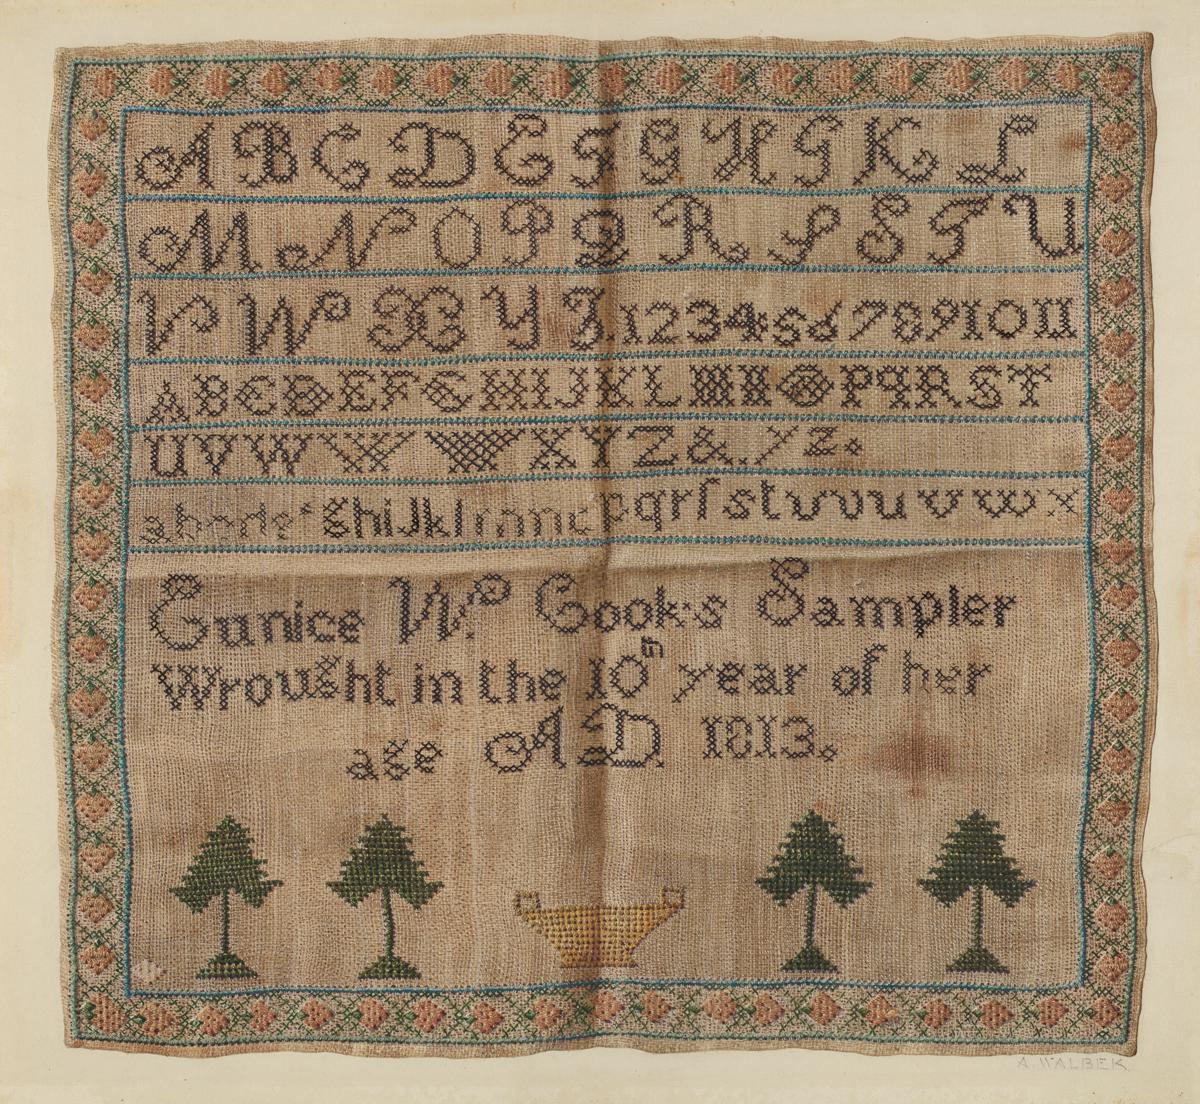 A B C D E F G H G K L
M N O P Q R S S T U
V W X Y Z 1 2 3 4 5 6 7 8 9 10 11
A B C D E F G H I J K L M N O P Q R S T
U V W W X Y Z & y z.
a b c d e f g h i j k l m n o p q r ſ s t v v u v w x
Eunice W. Cook's Sampler
Wrought in the 10th year of her
age AD 1813.
A. WALBEK